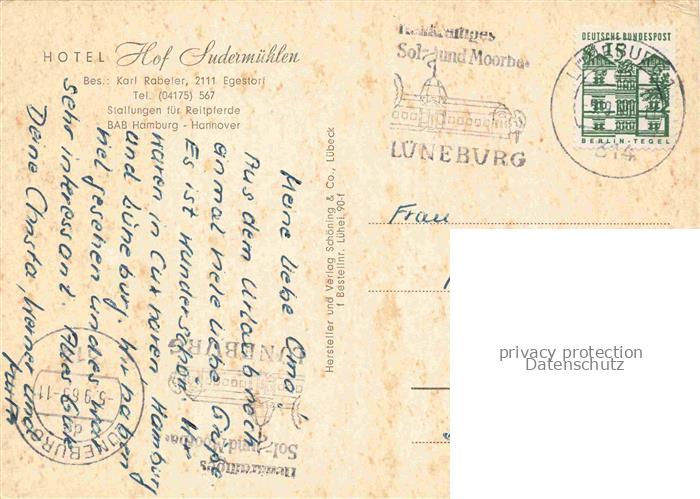 HOTEL Hof Sudermühlen
Bes.: Karl Rabeler, 2111 Egestorf
Tel. (04175) 567
Stallungen für Reitpferde
BAB Hamburg - Hannover
Meine liebe Oma!
Aus dem Urlaub noch
einmal viele liebe Grüße.
Es ist wunderschön. Wir
waren in Cuxhaven Hamburg
und Lüneburg. Wir haben
viel gesehen und es war
sehr interessant. Alles Gute
Deine Christa, Werner und
Hersteller und Verlag Schöning & Co., Lübeck
f Bestellnr. Lühei. 90-f
Heilkräftiges
Sol- und Moorbad
LÜNEBURG
DEUTSCHE BUNDESPOST
15
BERLIN-TEGEL
314
Frau
privacy protection
Datenschutz
Heilkräftiges
Sol- und Moorbad
LÜNEBURG
LÜNEBURG
-5.9.65-11